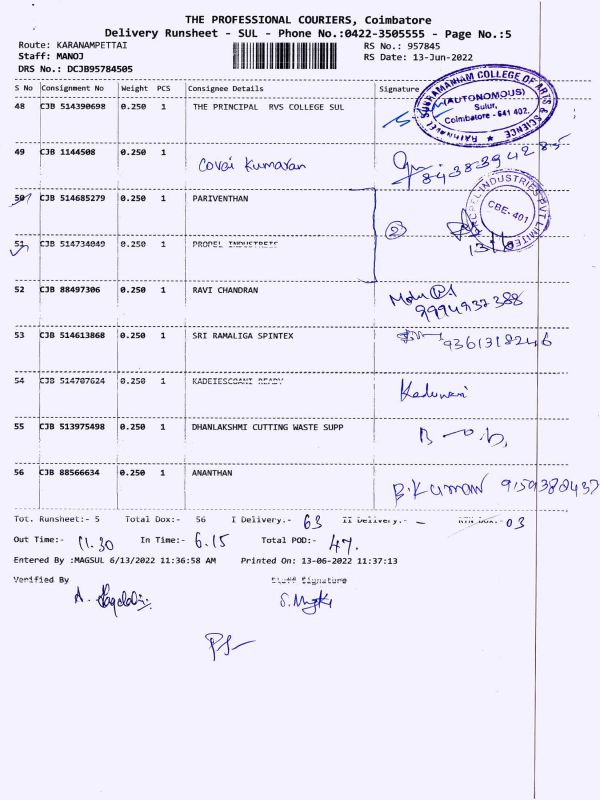 THE PROFESSIONAL COURIERS, Coimbatore
Delivery Runsheet - SUL - Phone No.:0422-3505555 - Page No.:5
Route: KARANAMPETTAI RS No.: 957845
Staff: MANOJ RS Date: 13-Jun-2022
DRS No.: DCJB95784505
S No Consignment No Weight PCS Consignee Details Signature
48 CJB 514390698 0.250 1 THE PRINCIPAL RVS COLLEGE SUL
SUBRAMANIAM COLLEGE OF ARTS & SCIENCE
(AUTONOMOUS)
Sulur,
Coimbatore - 641 402.
49 CJB 1144508 0.250 1 Covai Kumaran 8438394285
50 CJB 514685279 0.250 1 PARIVENTHAN
PROPEL INDUSTRIES PVT LIMITED
CBE- 401
2
51 CJB 514734049 0.250 1 PROPEL INDUSTREIS
52 CJB 88497306 0.250 1 RAVI CHANDRAN
9994937388
53 CJB 514613868 0.250 1 SRI RAMALIGA SPINTEX 9361318246
54 CJB 514707624 0.250 1 READY
55 CJB 513975498 0.250 1 DHANLAKSHMI CUTTING WASTE SUPP
56 CJB 88566634 0.250 1 ANANTHAN B.Kumar
Tot. Runsheet:- 5 Total Dox:- 56 I Delivery.- 63 II Delivery.- - RTN DOX.- 03
Out Time:- 11.30 In Time:- 6.15 Total POD:- 47.
Entered By :MAGSUL 6/13/2022 11:36:58 AM Printed On: 13-06-2022 11:37:13
Verified By Staff Signature